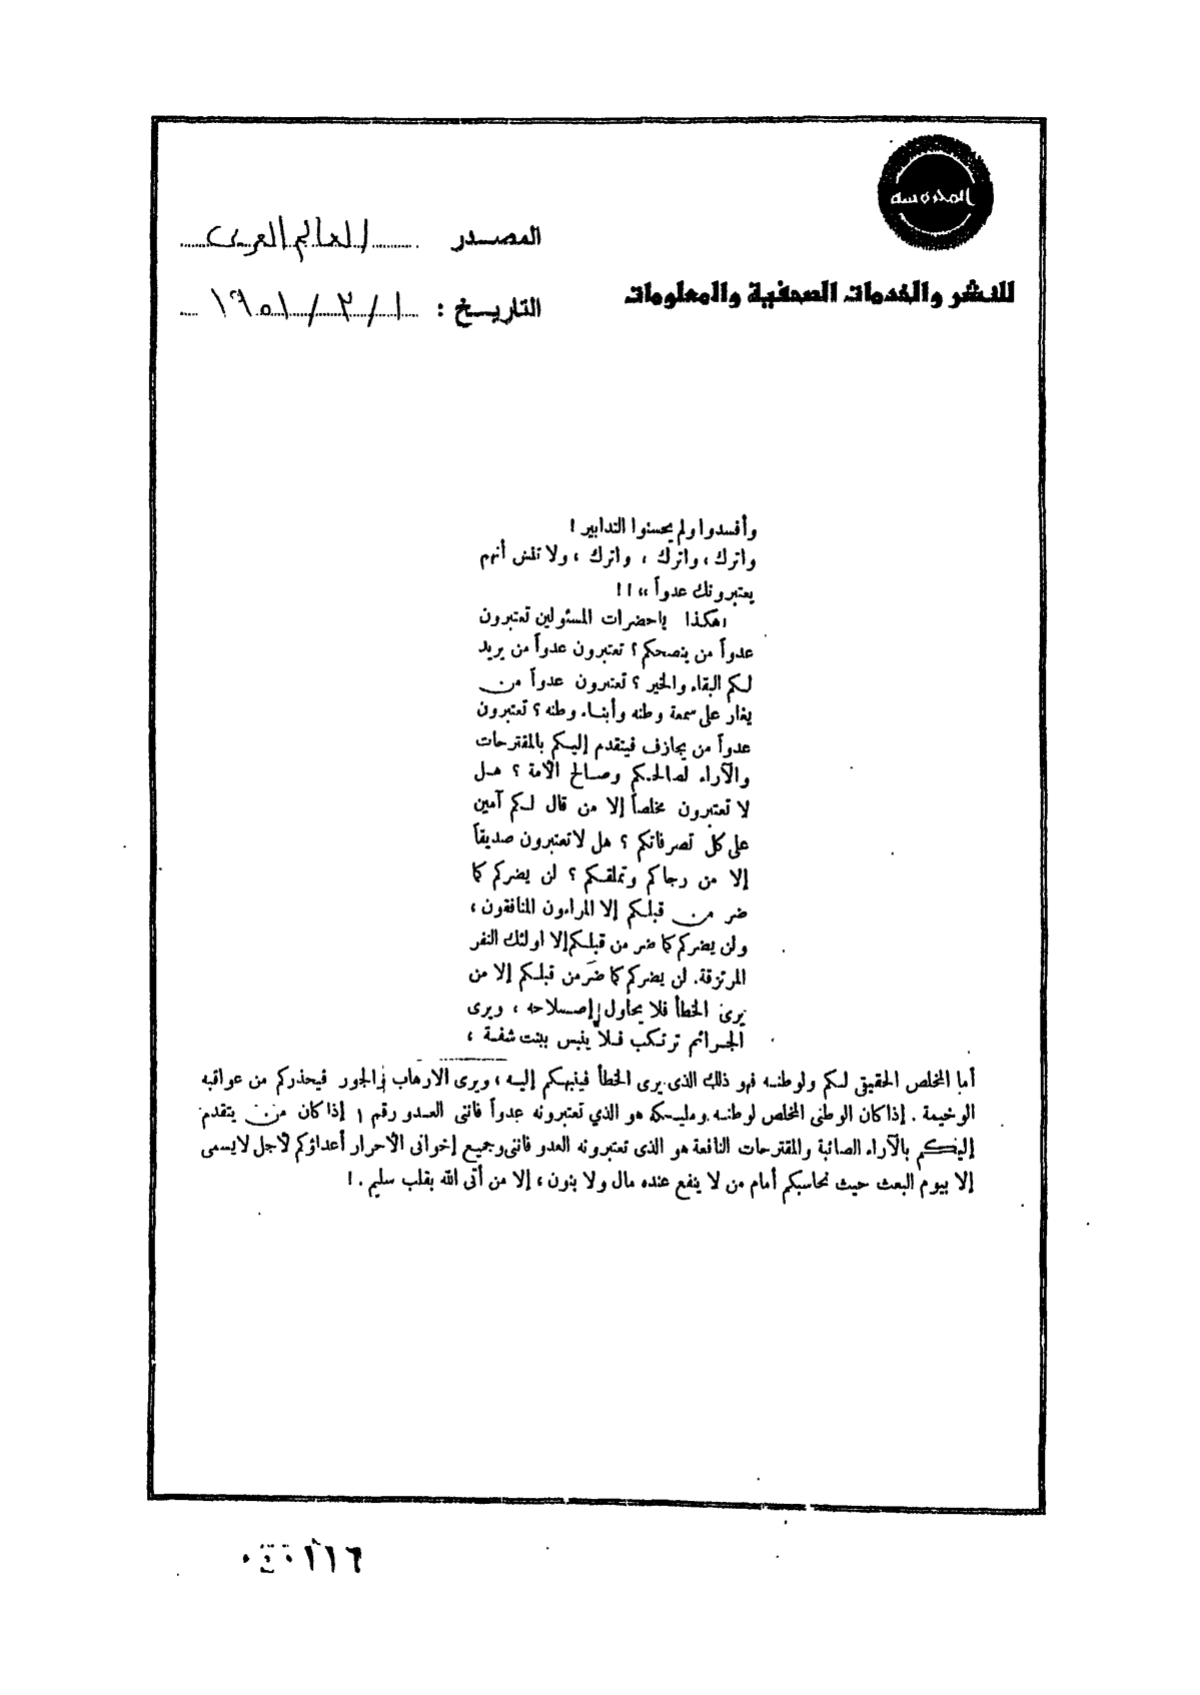 المحروسة
للنشر والخدمات الصحفية والمعلومات
المصدر العالم العربى
التاريخ : ١ / ٣ / ١٩٥١
وأفسدوا ولم يحسنوا التدابير !
واترك ، واترك ، واترك ، ولا تنس أنهم
يعتبرونك عدواً » ! !
هكذا ياحضرات المسئولين تعتبرون
عدواً من ينصحكم ؟ تعتبرون عدواً من يريد
لكم البقاء والخير ؟ تعتبرون عدواً من
يغار على سمعة وطنه وأبناء وطنه ؟ تعتبرون
عدواً من يجازف فيتقدم إليكم بالمقترحات
والآراء لصالحكم وصالح الأمة ؟ هل
لا تعتبرون مخلصاً إلا من قال لكم آمين
على كل تصرفاتكم ؟ هل لا تعتبرون صديقاً
إلا من رجاكم وتملقكم ؟ لن يضركم كما
ضر من قبلكم إلا المراءون المنافقون ،
ولن يضركم كما ضر من قبلكم إلا اولئك النفر
المرتزقة . لن يضركم كما ضر من قبلكم إلا من
يرى الخطأ فلا يحاول إصلاحه ، ويرى
الجرائم ترتكب فلا ينبس ببنت شفة ،
أما المخلص الحقيقى لكم ولوطنه فهو ذلك الذى يرى الخطأ فينبهكم إليه ، ويرى الارهاب والجور فيحذركم من عواقبه
الوخيمة . إذا كان الوطنى المخلص لوطنه ومليكه هو الذي تعتبرونه عدواً فانى العدو رقم ١ إذا كان من يتقدم
إليكم بالآراء الصائبة والمقترحات النافعة هو الذى تعتبرونه العدو فانى وجميع إخوانى الأحرار أعداؤكم لأجل لا يسمى
إلا بيوم البعث حيث نحاسبكم أمام من لا ينفع عنده مال ولا بنون ، إلا من أتى الله بقلب سليم . !